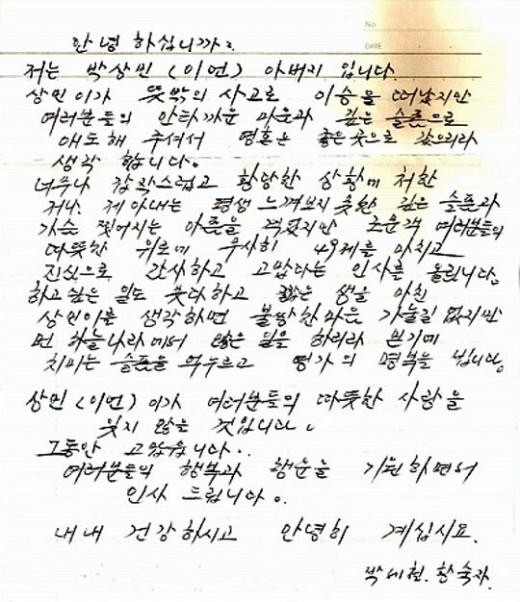 No
DATE
안녕 하십니까?
저는 박상민 (이언) 아버지 입니다.
상민이가 뜻밖의 사고로 이승을 떠났지만
여러분들의 안타까운 마음과 깊은 슬픔으로
애도해 주셔서 영혼은 좋은 곳으로 갔으리라
생각 합니다.
너무나 갑작스럽고 황당한 상황에 처한
저나, 제 아내는 평생 느껴보지 못한 깊은 슬픔과
가슴 찢어지는 아픔을 겪었지만 조문객 여러분들의
따뜻한 위로에 무사히 49제를 마치고
진심으로 감사하고 고맙다는 인사를 올립니다.
하고싶은 일도 못다하고 짧은 생을 마친
상민이를 생각하면 불쌍한 마음 가눌길 없지만
먼 하늘나라에서 많은 일을 하리라 믿기에
치미는 슬픔을 억누르고 명가의 명복을 빕니다.
상민 (이언) 이가 여러분들의 따뜻한 사랑을
잊지 않을 것입니다.
그동안 고맙습니다..
여러분들의 행복과 행운을 기원하면서
인사 드립니다.
내내 건강하시고 안녕히 계십시요.
박세철. 한숙자.